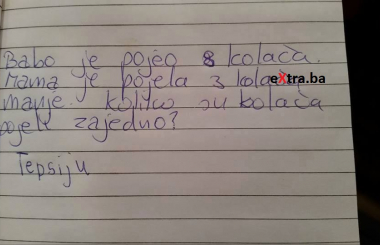 Babo je pojeo 8 kolača.
Mama je pojela 3 kolača
eXtra.ba
manje. koliko su kolača
pojeli zajedno?
Tepsiju